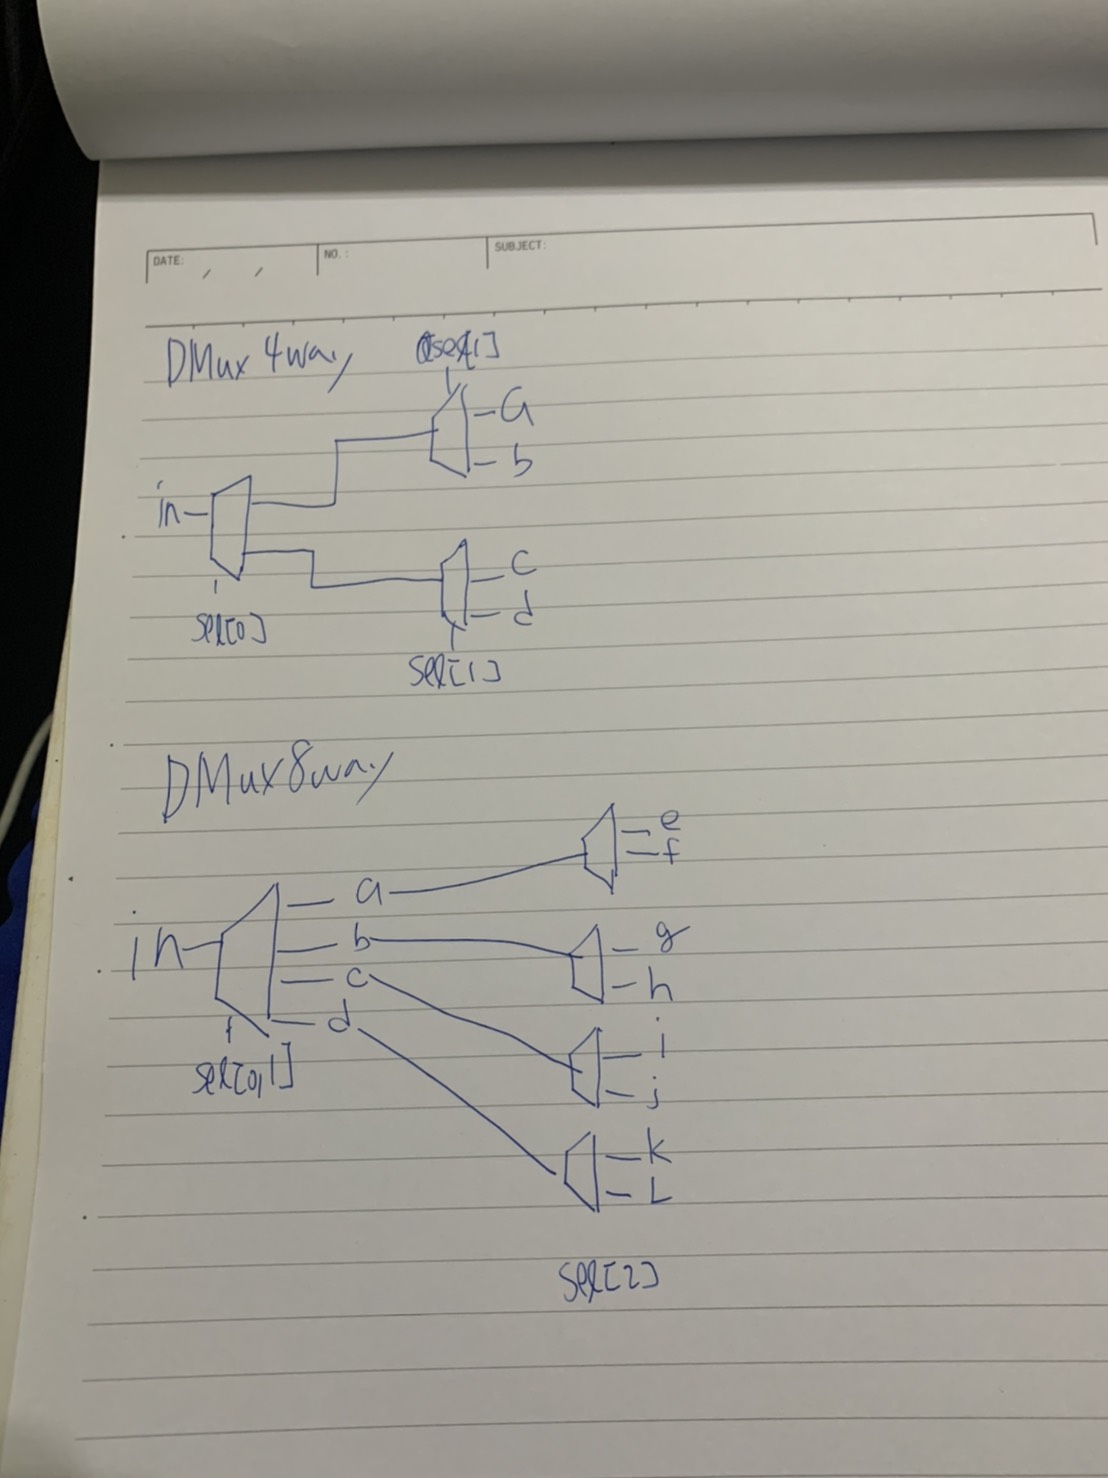 DATE: / / NO. : SUBJECT:
DMux 4way sel[1]
a
b
in
c
d
sel[0]
sel[1]
DMux8way
e
f
a
g
in b
h
c
i
d
sel[0,1]
j
k
L
sel[2]